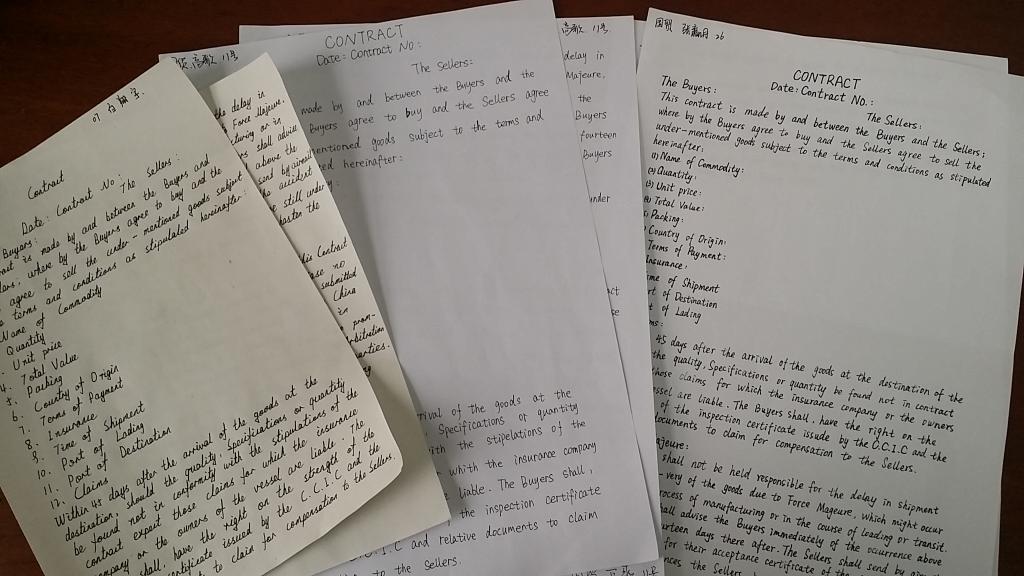 Contract
Date: Contract No:
Buyers: The Sellers:
is made by and between the Buyers and
where by the Buyers agree to buy and the
agree to sell the under-mentioned goods subject
terms and conditions as stipulated hereinafter:
Name of Commodity
Quantity
Unit price
4. Total Value
5. Packing
6. Country of Origin
7. Terms of Payment
8. Insurance
9. Time of Shipment
10. Port of Lading
11. Port of Destination
12. Claims
Within 45 days after the arrival of the goods at the
destination, should the quality, Specifications or quantity
be found not in conformity with the stipulations of the
contract expect those claims for which the insurance
company or the owners of the vessel are liable. The
shall, have the right on the strength of the
certificate issued by the C.C.I.C and the
to claim for compensation to the Sellers.
the delay in
Force Majeure,
or in
shall advise
above the
by airmail
the accident
still under
hasten the
this Contract
no
submitted
China
in
prom-
arbitration
11号
CONTRACT
Date: Contract No:
The Sellers:
made by and between the Buyers and the
Buyers agree to buy and the Sellers agree
mentioned goods subject to the terms and
hereinafter:
of the goods at the
Specifications or quantity
with the stipelations of the
which the insurance company
liable. The Buyers shall,
the inspection certificate
and relative documents to claim
to the Sellers.
11号
delay in
Majeure,
the
Buyers
fourteen
Buyers
under
26
CONTRACT
The Buyers: Date: Contract No.:
The Sellers:
This contract is made by and between the Buyers and the Sellers;
where by the Buyers agree to buy and the Sellers agree to sell the
under-mentioned goods subject to the terms and conditions as stipulated
hereinafter:
(1) Name of Commodity:
(2) Quantity:
(3) Unit price:
Total Value:
Packing:
Country of Origin:
Terms of Payment:
Insurance:
of Shipment
of Destination
of Lading
45 days after the arrival of the goods at the destination of the
the quality, Specifications or quantity be found not in contract
those claims for which the insurance company or the owners
are liable. The Buyers shall, have the right on the
of the inspection certificate issude by the C.C.I.C and the
documents to claim for compensation to the Sellers.
shall not be held responsible for the delay in shipment
of the goods due to Force Mageure, which might occur
process of manufacturing or in the course of loading or transit.
advise the Buyers immediately of the occurrence above
days there after. The Sellers shall send by
for their acceptance certificate of the
the Sellers